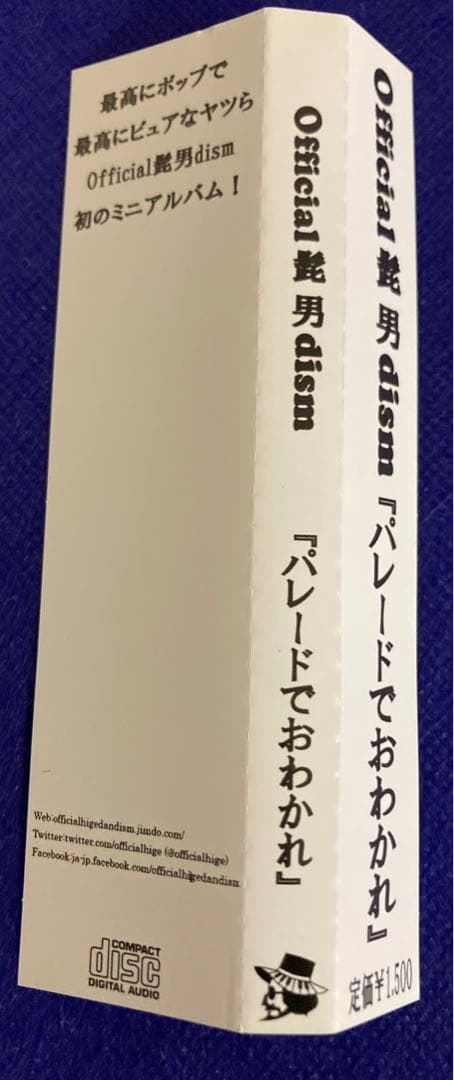 最高にポップで
最高にピュアなヤツら
Official髭男dism
初のミニアルバム！
Web:officialhigedandism.jimdo.com/
Twitter:twitter.com/officialhige (@officialhige)
Facebook:ja-jp.facebook.com/officialhigedandism
COMPACT
disc
DIGITAL AUDIO
Official髭男dism 『パレードでおわかれ』
Official髭男dism『パレードでおわかれ』
定価¥1,500